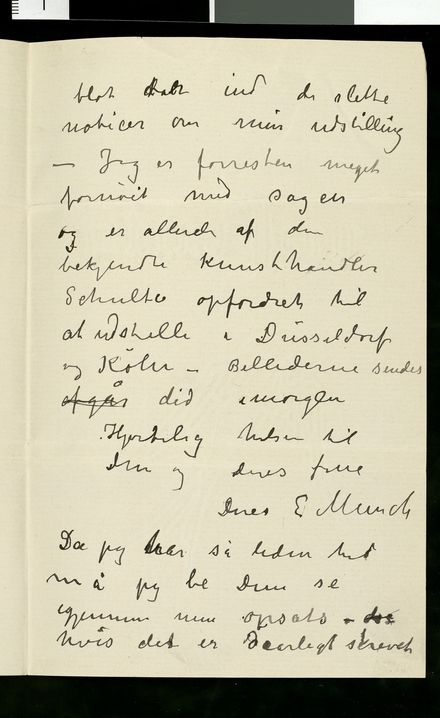 blot ind de slette
noticer om min udstilling
– Jeg er forresten meget
fornøiet med sagen
og er allerede af den
bekjendte Kunsthandler
Schulte opfordret til
at udstelle i Düsseldorf
og Köln – Billederne sendes
afgår did imorgen
Hjertelig hilsen til
Dem og deres frue
Deres E Munch
Da jeg har så liden tid
må jeg be Dem se
igjennem min opsats –
hvis det er daarligt skrevet